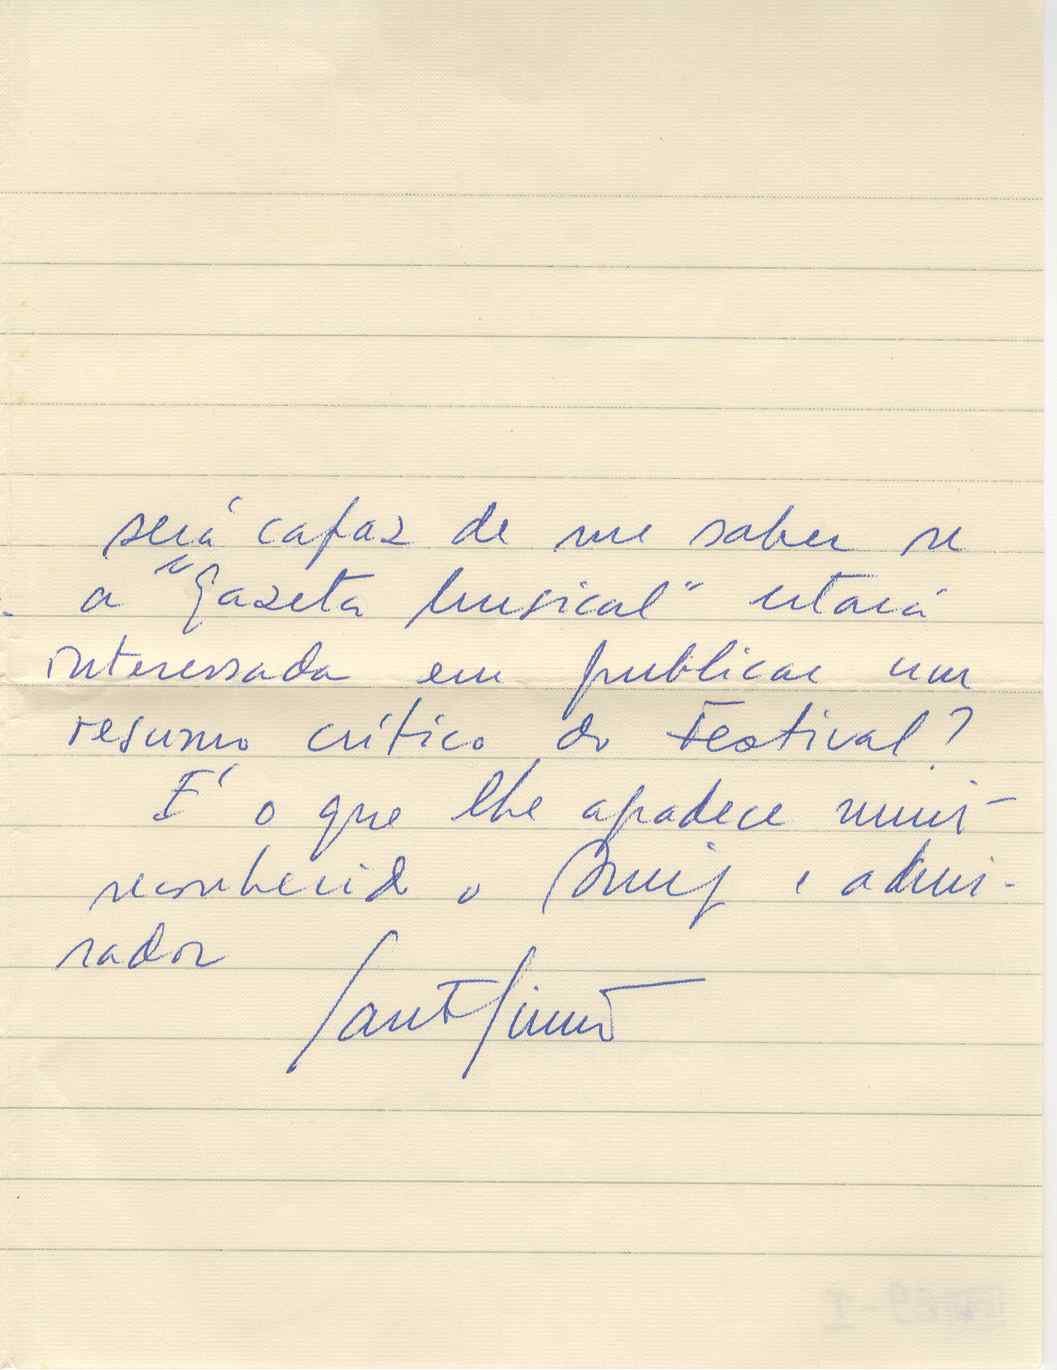 será capaz de me saber se
a "Gazeta Musical" estará
interessada em publicar um
resumo crítico do Festival?
É o que lhe agradece muit
reconhecido o Amig e admi-
rador